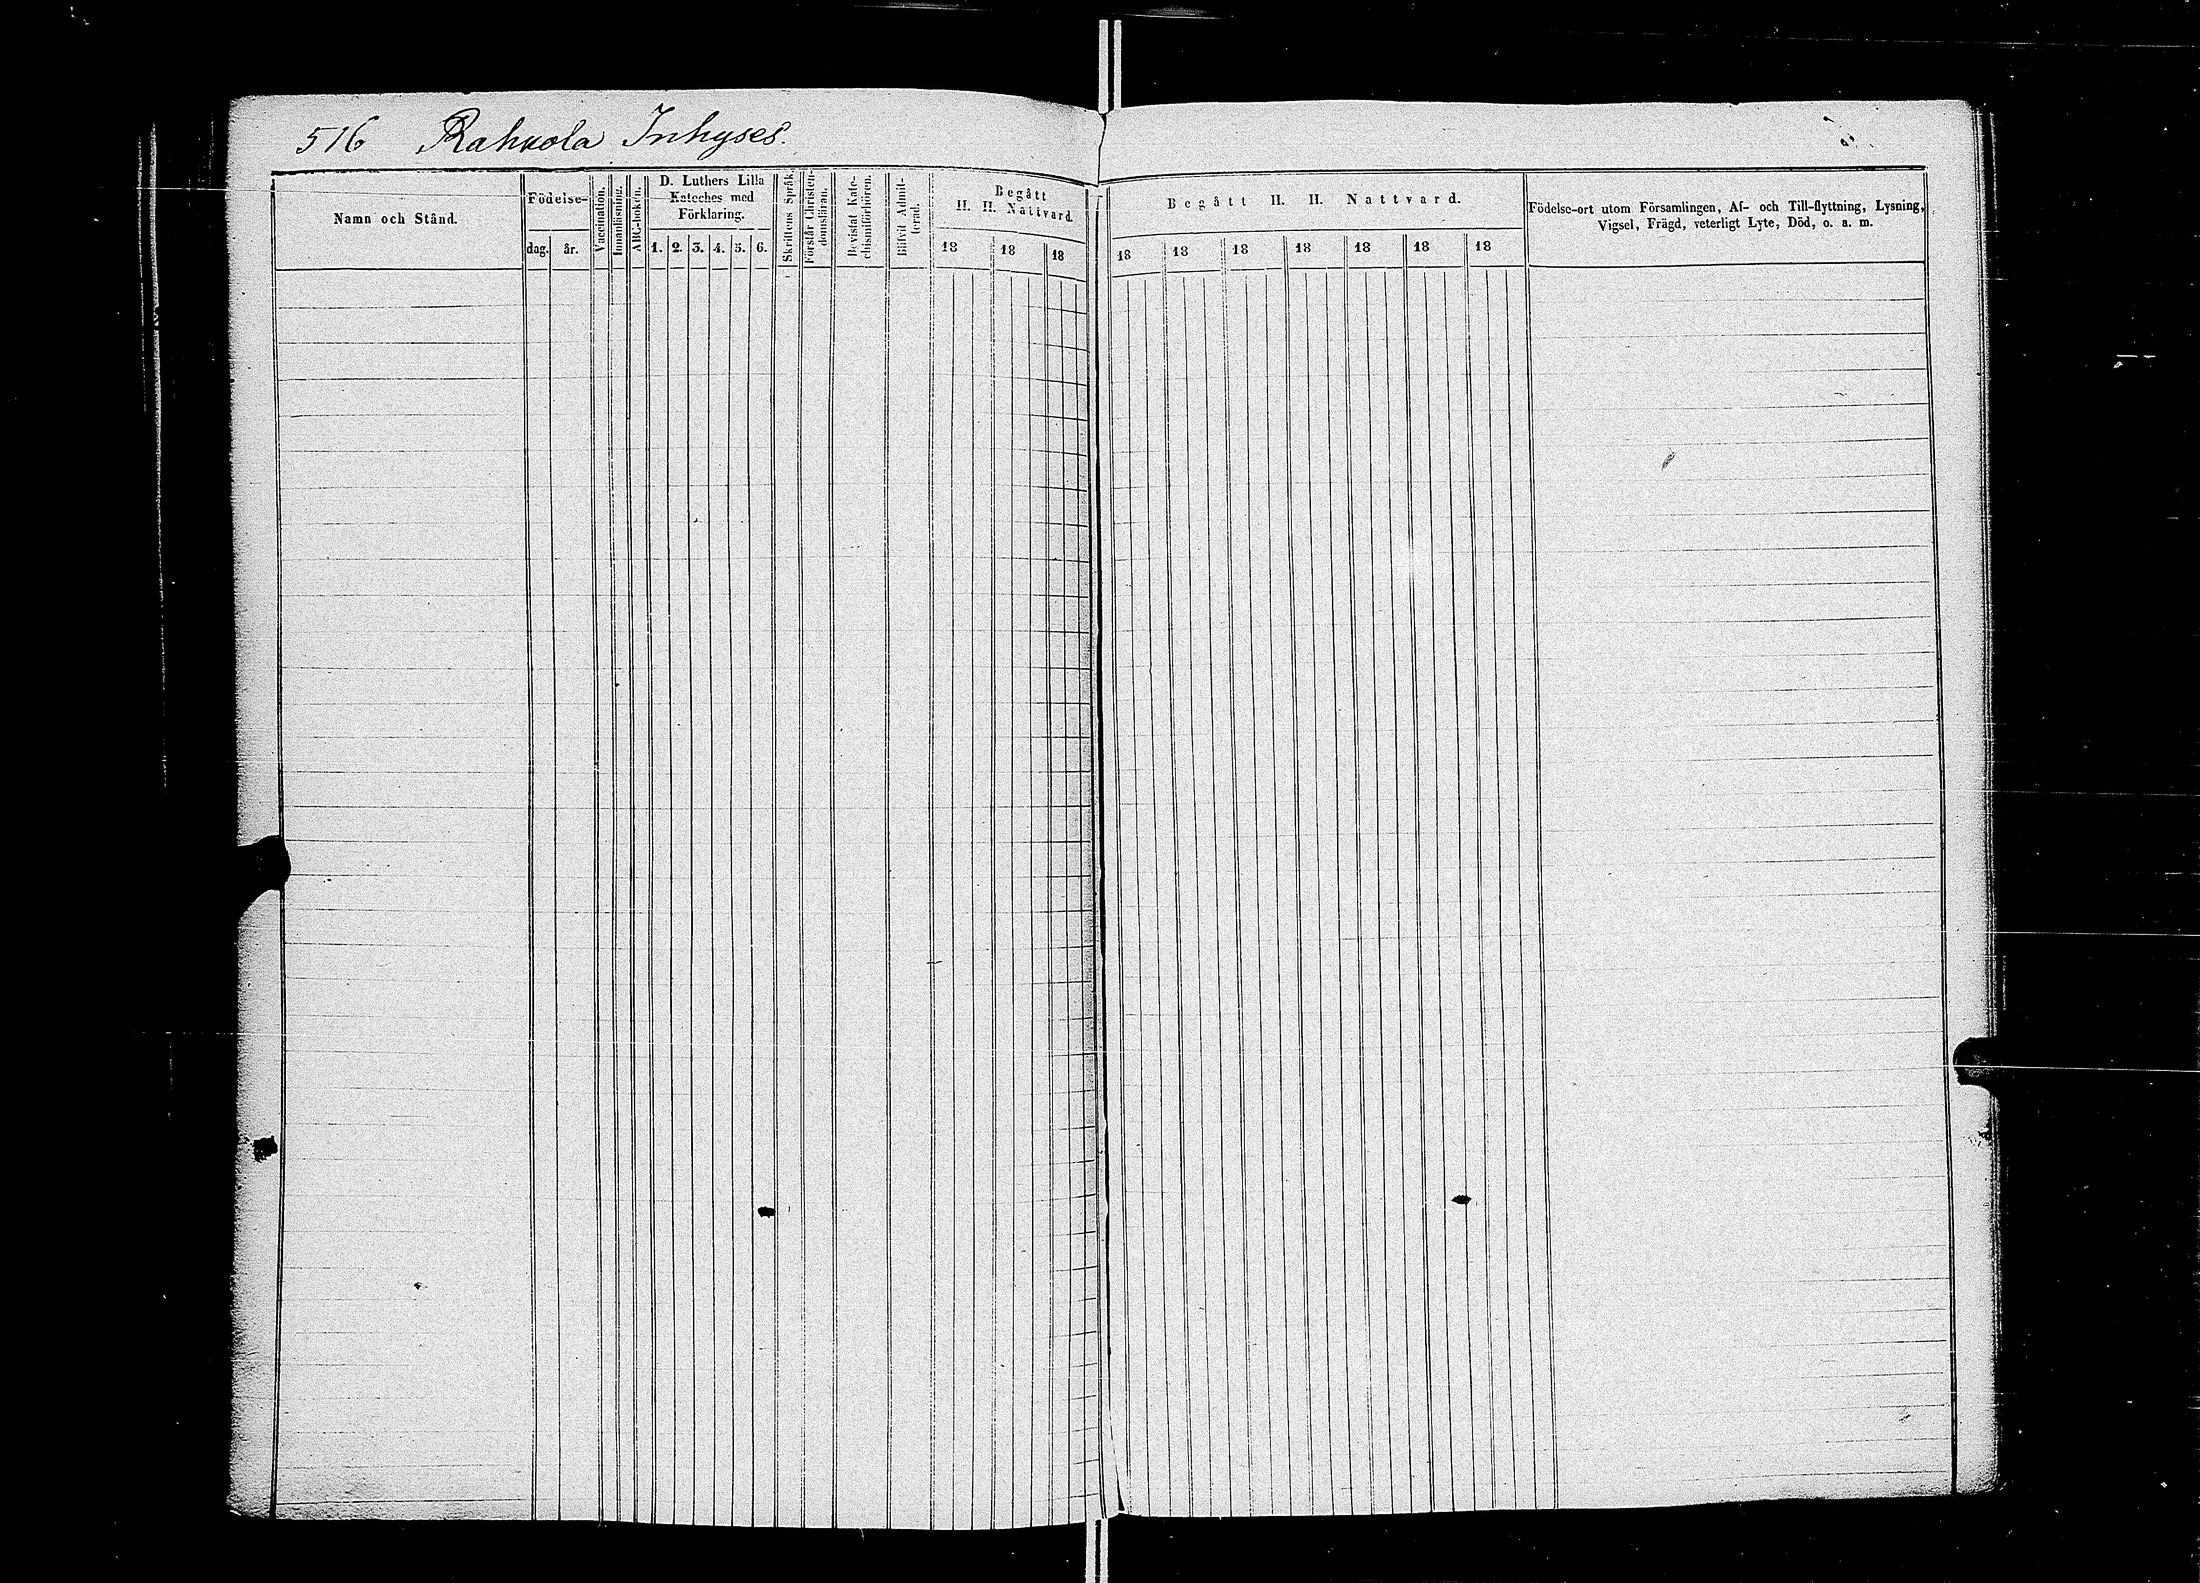 516 Rahkola Inhyses.
Namn och Stånd.
Födelse-
dag. år.
Vaccination.
Innanläsning.
ABC-boken.
D. Luthers Lilla
Kateches med
Förklaring.
1. 2. 3. 4. 5. 6.
Skriftens Språk.
Förstår Christen-
domsläran.
Bevistat Kate-
chismiförhören.
Blifvit Admit-
terad.
Begått
H. H. Nattvard.
18 18 18
Begått H. H. Nattvard.
18 18 18 18 18 18 18
Födelse-ort utom Församlingen, Af- och Till-flyttning, Lysning,
Vigsel, Frägd, veterligt Lyte, Död, o. a. m.